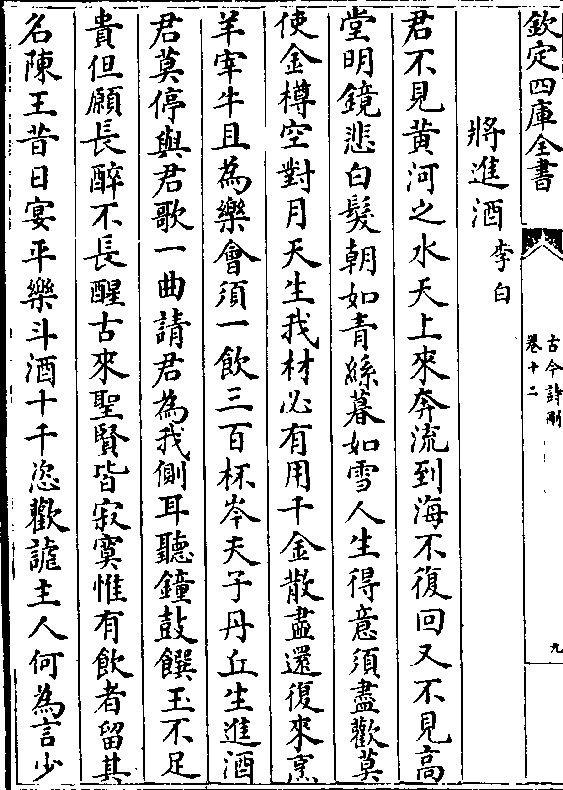 欽定四庫全書
古今詩刪
卷十二
九
將進酒 李白
君不見黃河之水天上來奔流到海不復回又不見高
堂明鏡悲白髮朝如青絲暮如雪人生得意須盡歡莫
使金樽空對月天生我材必有用千金散盡還復來烹
羊宰牛且為樂會須一飲三百杯岑夫子丹丘生進酒
君莫停與君歌一曲請君為我側耳聽鐘鼓饌玉不足
貴但願長醉不長醒古來聖賢皆寂寞惟有飲者留其
名陳王昔日宴平樂斗酒十千恣歡謔主人何為言少